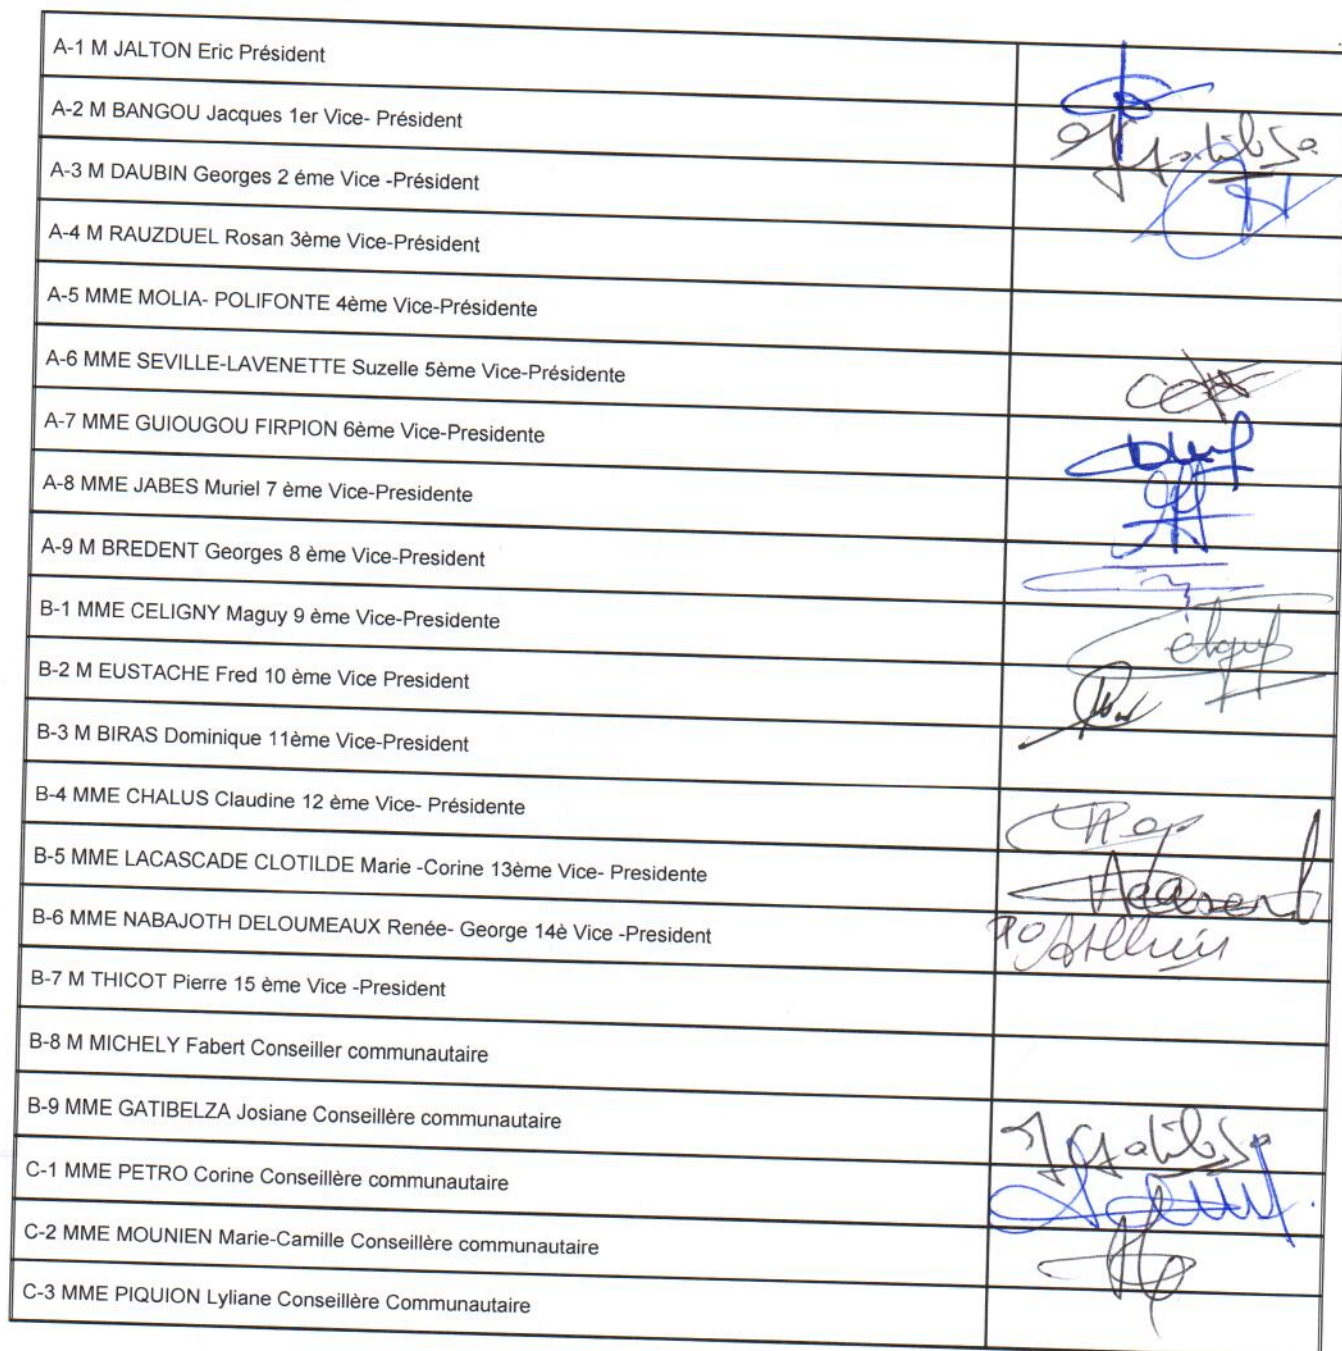 A-1 M JALTON Eric Président
A-2 M BANGOU Jacques 1er Vice- Président
A-3 M DAUBIN Georges 2 éme Vice -Président
A-4 M RAUZDUEL Rosan 3ème Vice-Président
A-5 MME MOLIA- POLIFONTE 4ème Vice-Présidente
A-6 MME SEVILLE-LAVENETTE Suzelle 5ème Vice-Présidente
A-7 MME GUIOUGOU FIRPION 6ème Vice-Presidente
A-8 MME JABES Muriel 7 ème Vice-Presidente
A-9 M BREDENT Georges 8 ème Vice-President
B-1 MME CELIGNY Maguy 9 ème Vice-Presidente
B-2 M EUSTACHE Fred 10 ème Vice President
B-3 M BIRAS Dominique 11ème Vice-President
B-4 MME CHALUS Claudine 12 ème Vice- Présidente
B-5 MME LACASCADE CLOTILDE Marie -Corine 13ème Vice- Presidente
B-6 MME NABAJOTH DELOUMEAUX Renée- George 14è Vice -President
B-7 M THICOT Pierre 15 ème Vice -President
B-8 M MICHELY Fabert Conseiller communautaire
B-9 MME GATIBELZA Josiane Conseillère communautaire
C-1 MME PETRO Corine Conseillère communautaire
C-2 MME MOUNIEN Marie-Camille Conseillère communautaire
C-3 MME PIQUION Lyliane Conseillère Communautaire